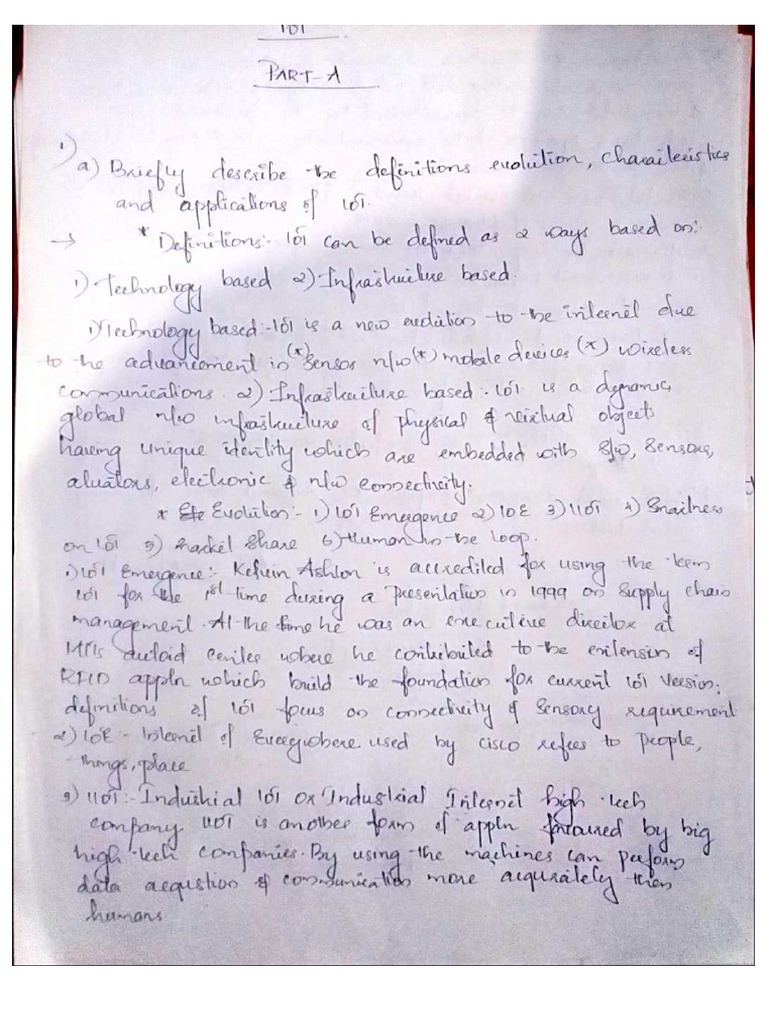 IOT
PART-A
1)
a) Briefly describe the definitions evolution, charaiteristics
and applications of IOT.
→ * Definitions:- IOT can be defined as 2 ways based on:
1) Technology based 2) Infrastructure based.
1) Technology based:- IOT is a new evolution to the internet due
to the advancement in (*) sensor n/w (*) mobile devices (*) wireless
communications. 2) Infrastructure based:- IOT is a dynamic
global n/w infrastructure of physical & virtual objects
having unique identity which are embedded with S/w, sensors,
atuators, electronic & n/w connectivity.
* Evolution:- 1) IOT Emergence 2) IOE 3) IIOT 4)
on IOT 5) Market Share 6) Human in the loop.
1) IOT Emergence:- Kelvin Ashton is accredited for using the term
IOT for the 1st time during a presentation in 1999 on supply chain
management. At the time he was an executive director at
MITs autoid center where he contributed to the extension of
RFID appln which build the foundation for current IOT version.
definitions of IOT focus on connectivity & sensory requirement
2) IOE - Internet of Everywhere used by cisco refers to people,
things, place
3) IIOT:- Industrial IOT or Industrial Internet high tech
company IIOT is another form of appln favoured by big
high tech companies. By using the machines can perform
data acqustion & communication more acqurately then
humans